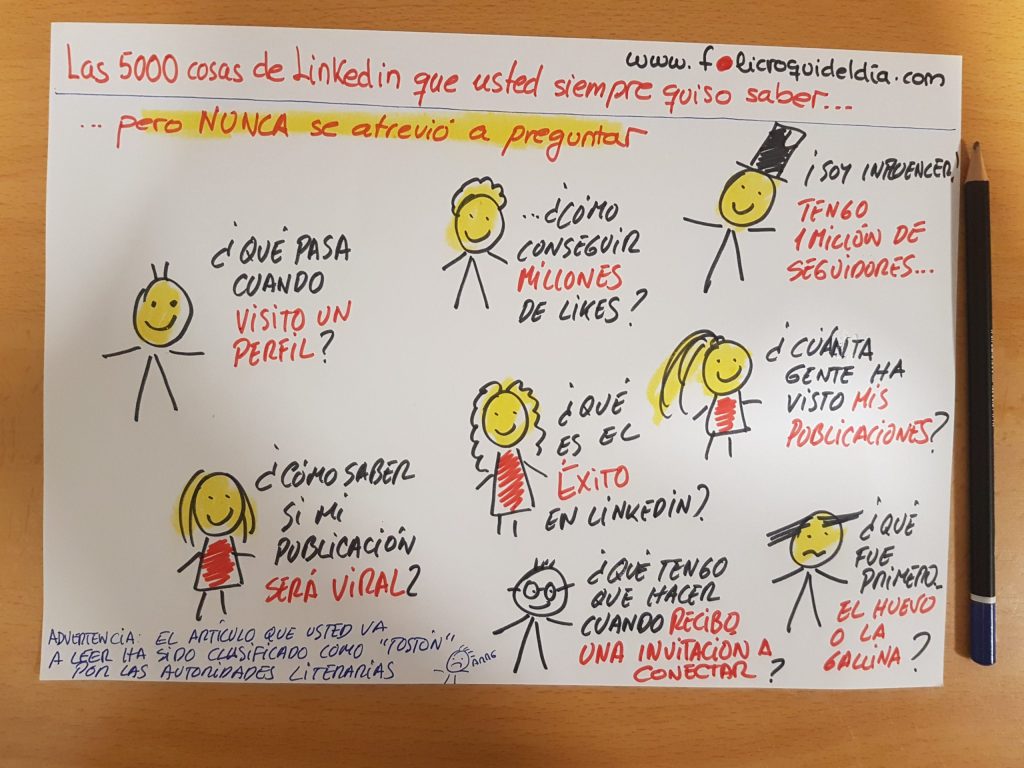 www.felicroquideldía.com
Las 5000 cosas de Linkedin que usted siempre quiso saber...
... pero NUNCA se atrevió a preguntar
¿QUÉ PASA
CUANDO
VISITO UN
PERFIL?
...¿CÓMO
CONSEGUIR
MILLONES
DE LIKES?
¡SOY INFLUENCER!
TENGO
1 MILLÓN DE
SEGUIDORES...
¿CUÁNTA
GENTE HA
VISTO MIS
PUBLICACIONES?
¿QUÉ
ES EL
ÉXITO
EN LINKEDIN?
¿CÓMO SABER
SI MI
PUBLICACIÓN
SERÁ VIRAL?
¿QUÉ TENGO
QUE HACER
CUANDO RECIBO
UNA INVITACIÓN A
CONECTAR?
¿QUÉ
FUE
PRIMERO
EL HUEVO
O LA
GALLINA?
ADVERTENCIA: EL ARTÍCULO QUE USTED VA
A LEER HA SIDO CLASIFICADO COMO "TOSTÓN"
POR LAS AUTORIDADES LITERARIAS